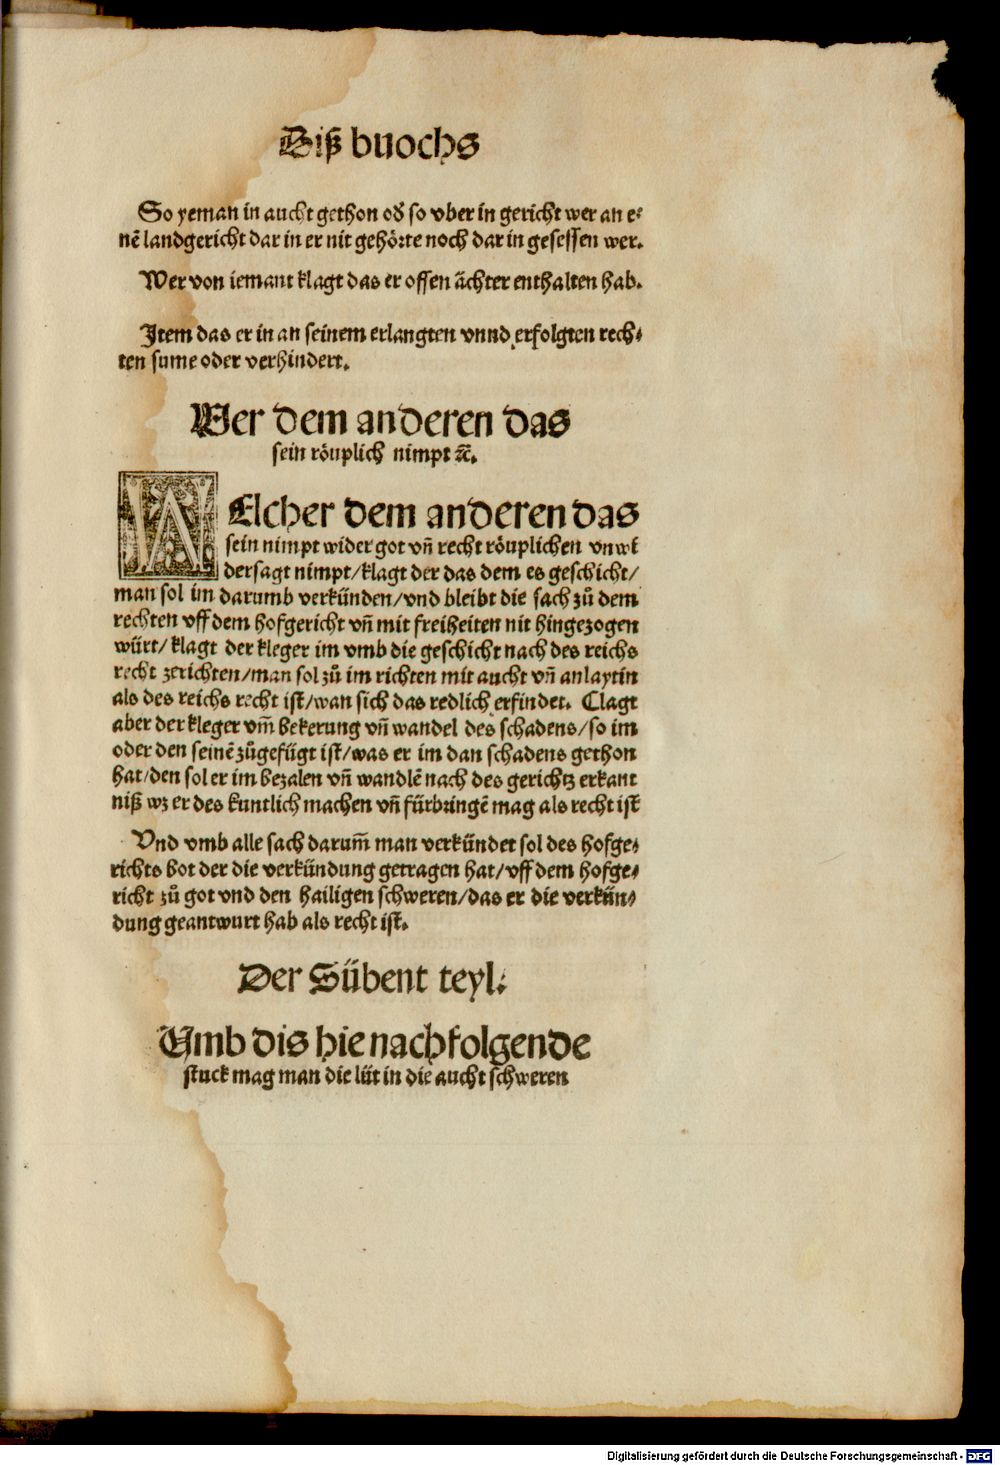 Diß buochs
So yeman in aucht gethon od̕ so vber in gericht wer an e⸗
nē landgericht dar in er nit gehörte noch dar in gesessen wer.
Wer von iemant klagt das er offen ächter enthalten hab.
Item das er in an seinem erlangten vnnd erfolgten rech⸗
ten sume oder verhindert.
Wer dem anderen das
sein röuplich nimpt ꝛc̄.
WElcher dem anderen das
sein nimpt wider got vn̄ recht röuplichen vnwi
dersagt nimpt/klagt der das dem es geschicht/
man sol im darumb verkünden/vnd bleibt die sach zů dem
rechten vff dem hofgericht vn̄ mit freiheiten nit hingezogen
würt/ klagt der kleger im vmb die geschicht nach des reichs
recht zerichten/man sol zů im richten mit aucht vn̄ anlaytin
als des reichs recht ist/wan sich das redlich erfindet. Clagt
aber der kleger vm̄ bekerung vn̄ wandel des schadens/so im
oder den seinē zůgefügt ist/was er im dan schadens gethon
hat/den sol er im bezalen vn̄ wandlē nach des gerichtz erkant
niß wz er des kuntlich machen vn̄ fürbringē mag als recht ist
Vnd vmb alle sach darum̄ man verkündet sol des hofge⸗
richts bot der die verkündung getragen hat/vff dem hofge⸗
richt zů got vnd den hailigen schweren/das er die verkün⸗
dung geantwurt hab als recht ist.
Der Sübent teyl.
Vmb dis hie nachfolgende
stuck mag man die lüt in die aucht schweren
Digitalisierung gefördert durch die Deutsche Forschungsgemeinschaft - DFG